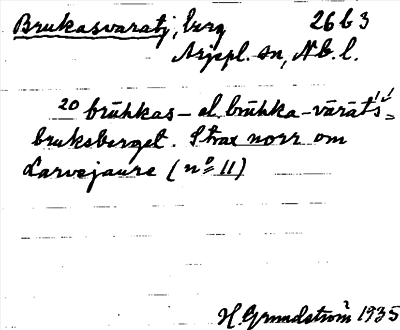 Brukasvaratj, berg 26 b 3
Arjepl. sn, Nb. l.
20 brūhkas- el. brūhka-vārāt's' =
bruksberget. Strax norr om
Larvejaure (nº 11)
H. Grundström 1935